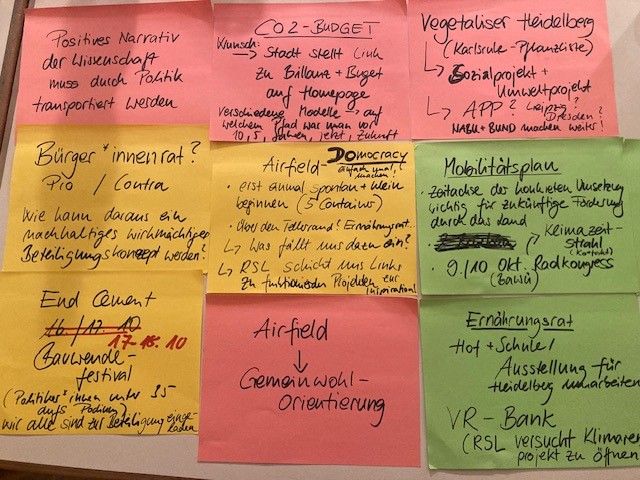 Positives Narrativ
der Wissenschaft
muss durch Politik
transportiert werden
CO2-BUDGET
Wunsch:
→ Stadt stellt Link
zu Billanz + Buget
auf Homepage
Verschiedene Modelle → auf
welchem Pfad war man vor
10, 5, Jahren, jetzt, Zukunft
Vegetaliser Heidelberg
(Karlsruhe-Pflanzliste)
↳ Sozialprojekt +
Umweltprojekt
↳ APP? Leipzig?
Dresden?
NABU + BUND machen weiter!
Bürger*innenrat?
Pro / Contra
Wie kann daraus ein
nachhaltiges wirkmächtiges
Beteiligungskonzept werden?
Airfield DOmocracy
einfach mal machen!
• erst einmal spontan + klein
beginnen (5 Container)
• über den Tellerrand? Ernährungsrat...
↳ Was fällt uns dazu ein?
↳ RSL schickt uns Links
zu funktionierenden Projekten zur
Inspiration!
Mobilitätsplan
• Zeitachse der konkreten Umsetzung
wichtig für zukünftige Förderung
durch das Land
→ Klimazeit-
strahl
• 9./10 Okt. Radkongress
End Cement
16./17. 10
17-18. 10
Bauwende-
festival
(Politiker*innen unter 35
aufs Podium)
wir alle sind zur Beteiligung einge-
laden
Airfield
↓
Gemeinwohl-
orientierung
Ernährungsrat
Hof + Schule /
Ausstellung für
Heidelberg umarbeiten
VR-Bank
(RSL versucht Klimaren
projekt zu öffnen